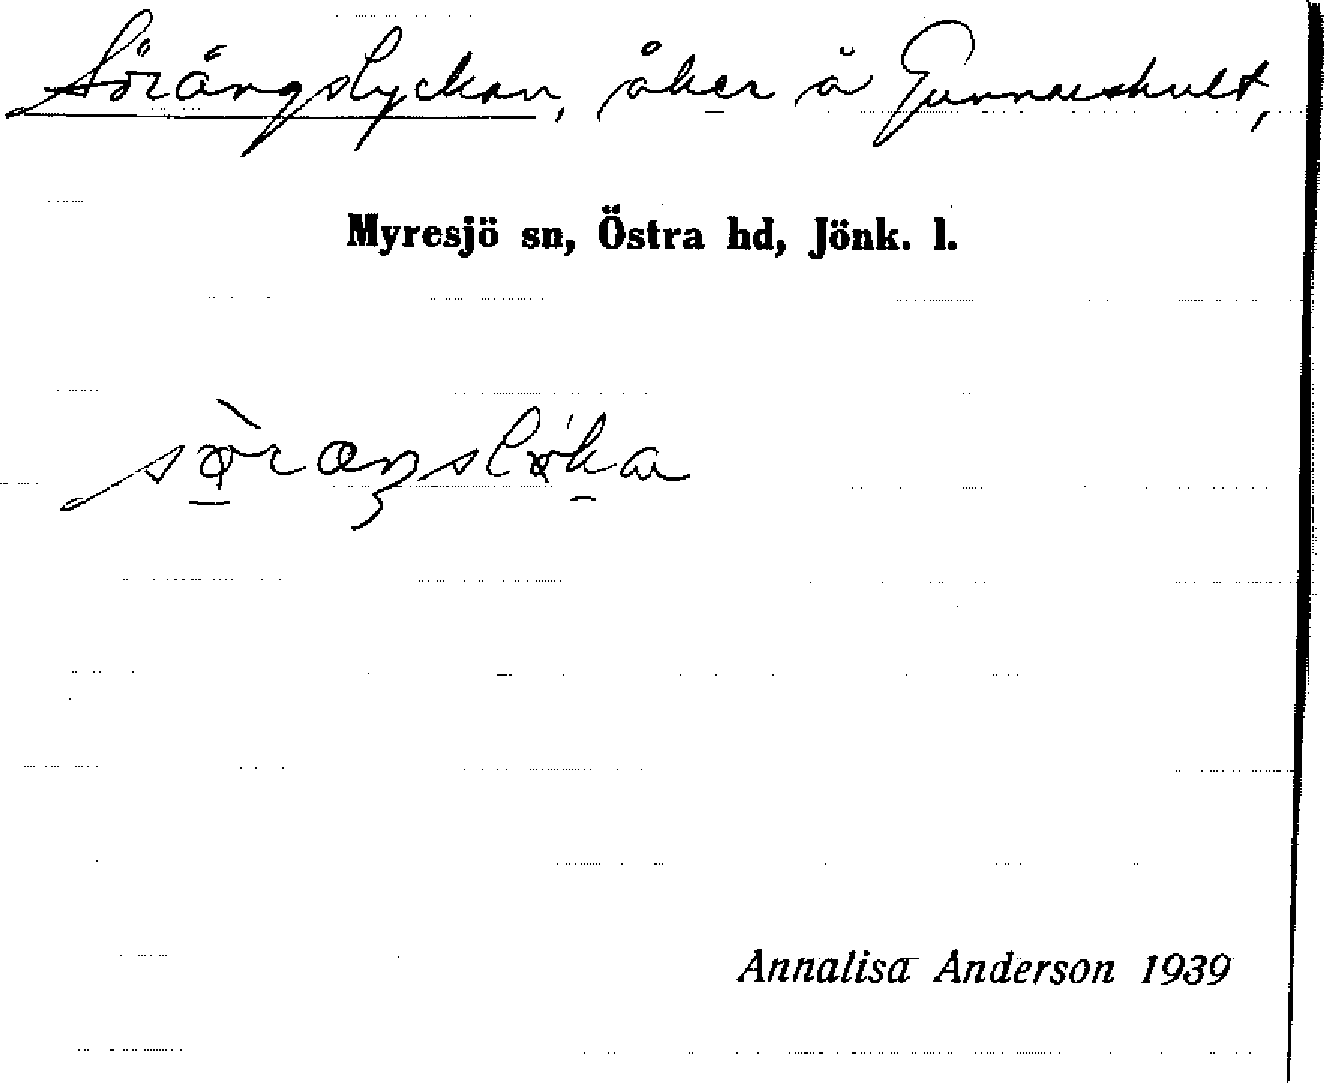 Sörängslyckan, åker å Gunnarshult,
Myresjö sn, Östra hd, Jönk. l.
Annalisa Anderson 1939